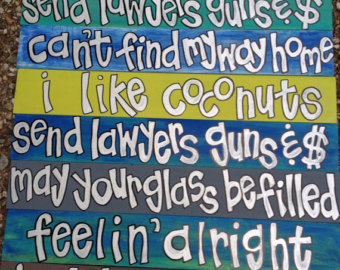 send lawyers guns & $
can't find my way home
i like coconuts
send lawyers guns & $
may your glass be filled
feelin' alright